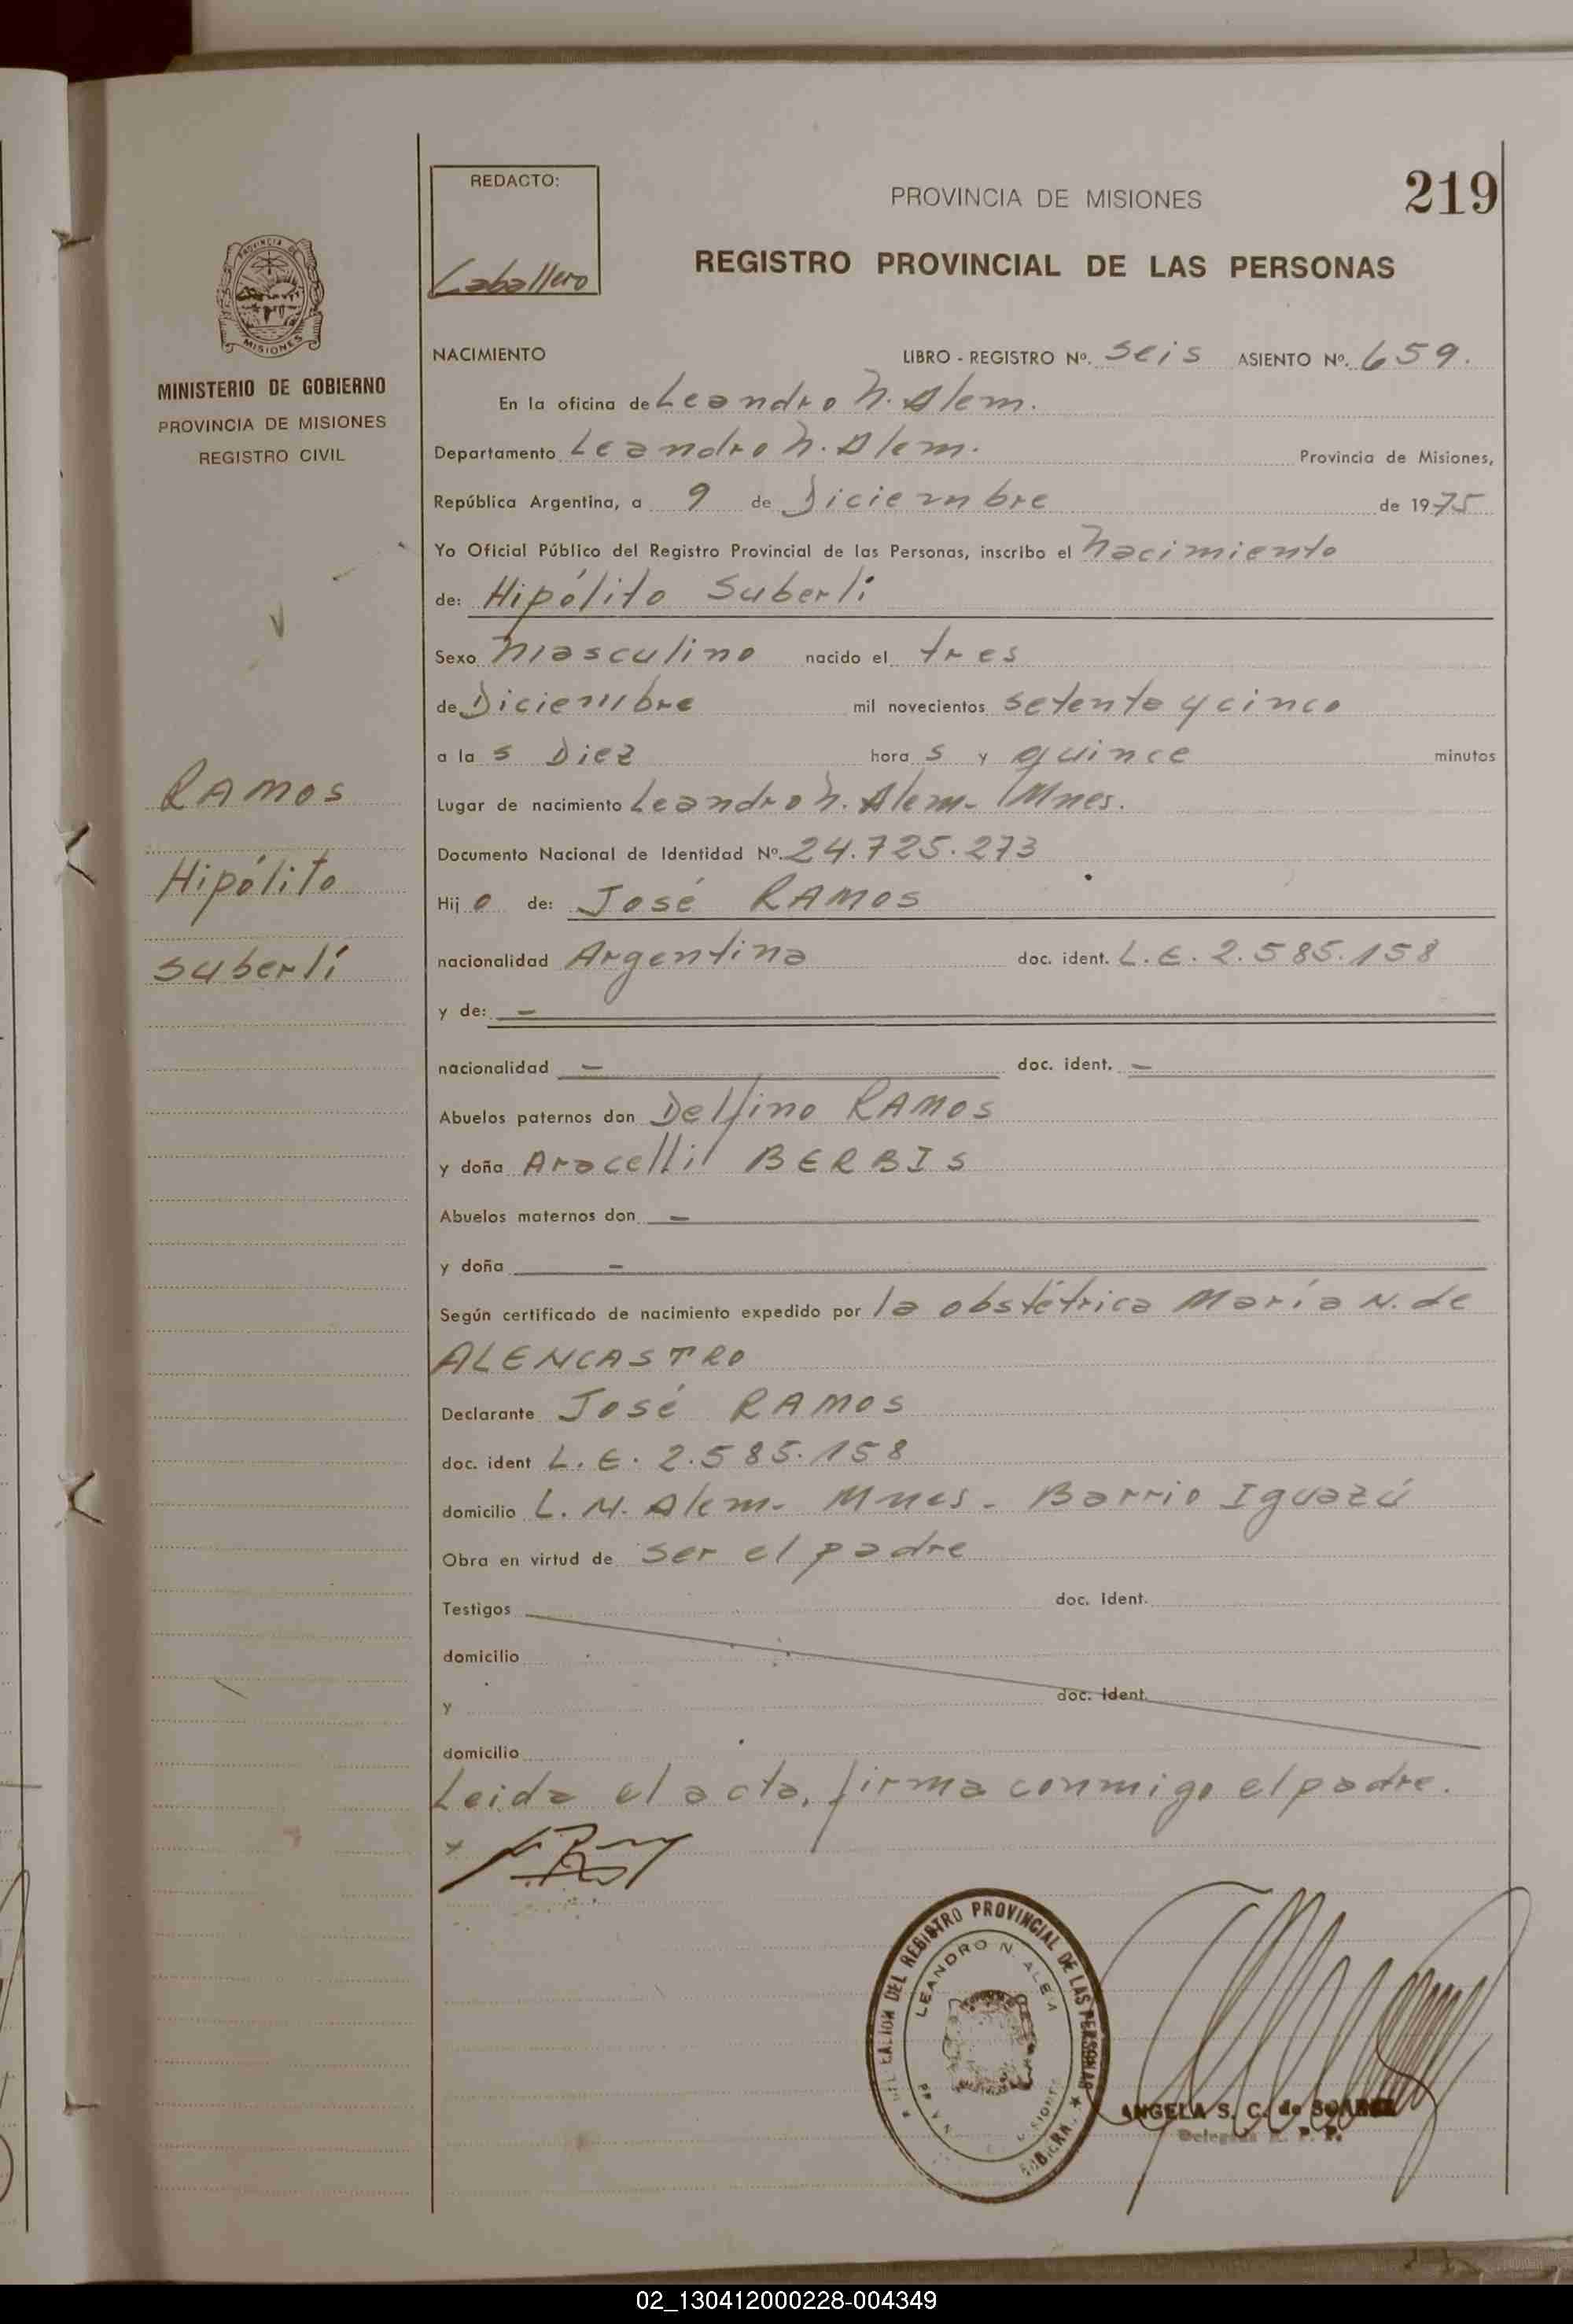 219
REDACTO:
Caballero
PROVINCIA DE MISIONES
REGISTRO PROVINCIAL DE LAS PERSONAS
PROVINCIA DE
MISIONES
MINISTERIO DE GOBIERNO
PROVINCIA DE MISIONES
REGISTRO CIVIL
RAMOS
Hipólito
Suberlí
NACIMIENTO LIBRO - REGISTRO Nº. Seis ASIENTO Nº. 659.
En la oficina de Leandro N. Alem.
Departamento Leandro N. Alem. Provincia de Misiones,
República Argentina, a 9 de Diciembre de 1975
Yo Oficial Público del Registro Provincial de las Personas, inscribo el Nacimiento
de: Hipólito Suberlí
Sexo Masculino nacido el tres
de Diciembre mil novecientos setenta y cinco
a la s Diez hora s y quince minutos
Lugar de nacimiento Leandro N. Alem - Mnes.
Documento Nacional de Identidad Nº. 24.725.273
Hij o de: José RAMOS
nacionalidad Argentina doc. ident. L.E. 2.585.158
y de: -
nacionalidad - doc. ident. -
Abuelos paternos don Delfino RAMOS
y doña Aracelli BERBIS
Abuelos maternos don -
y doña -
Según certificado de nacimiento expedido por la obstétrica María N. de
ALENCASTRO
Declarante José RAMOS
doc. ident L.E. 2.585.158
domicilio L. N. Alem - Mnes - Barrio Iguazú
Obra en virtud de ser el padre
Testigos doc. Ident.
domicilio
y doc. Ident.
domicilio
Leida el acta, firma conmigo el padre.
DEL REGISTRO PROVINCIAL DE LAS PERSONAS
LEANDRO N. ALEM
ANGELA S. C. de SUAREZ
02_130412000228-004349